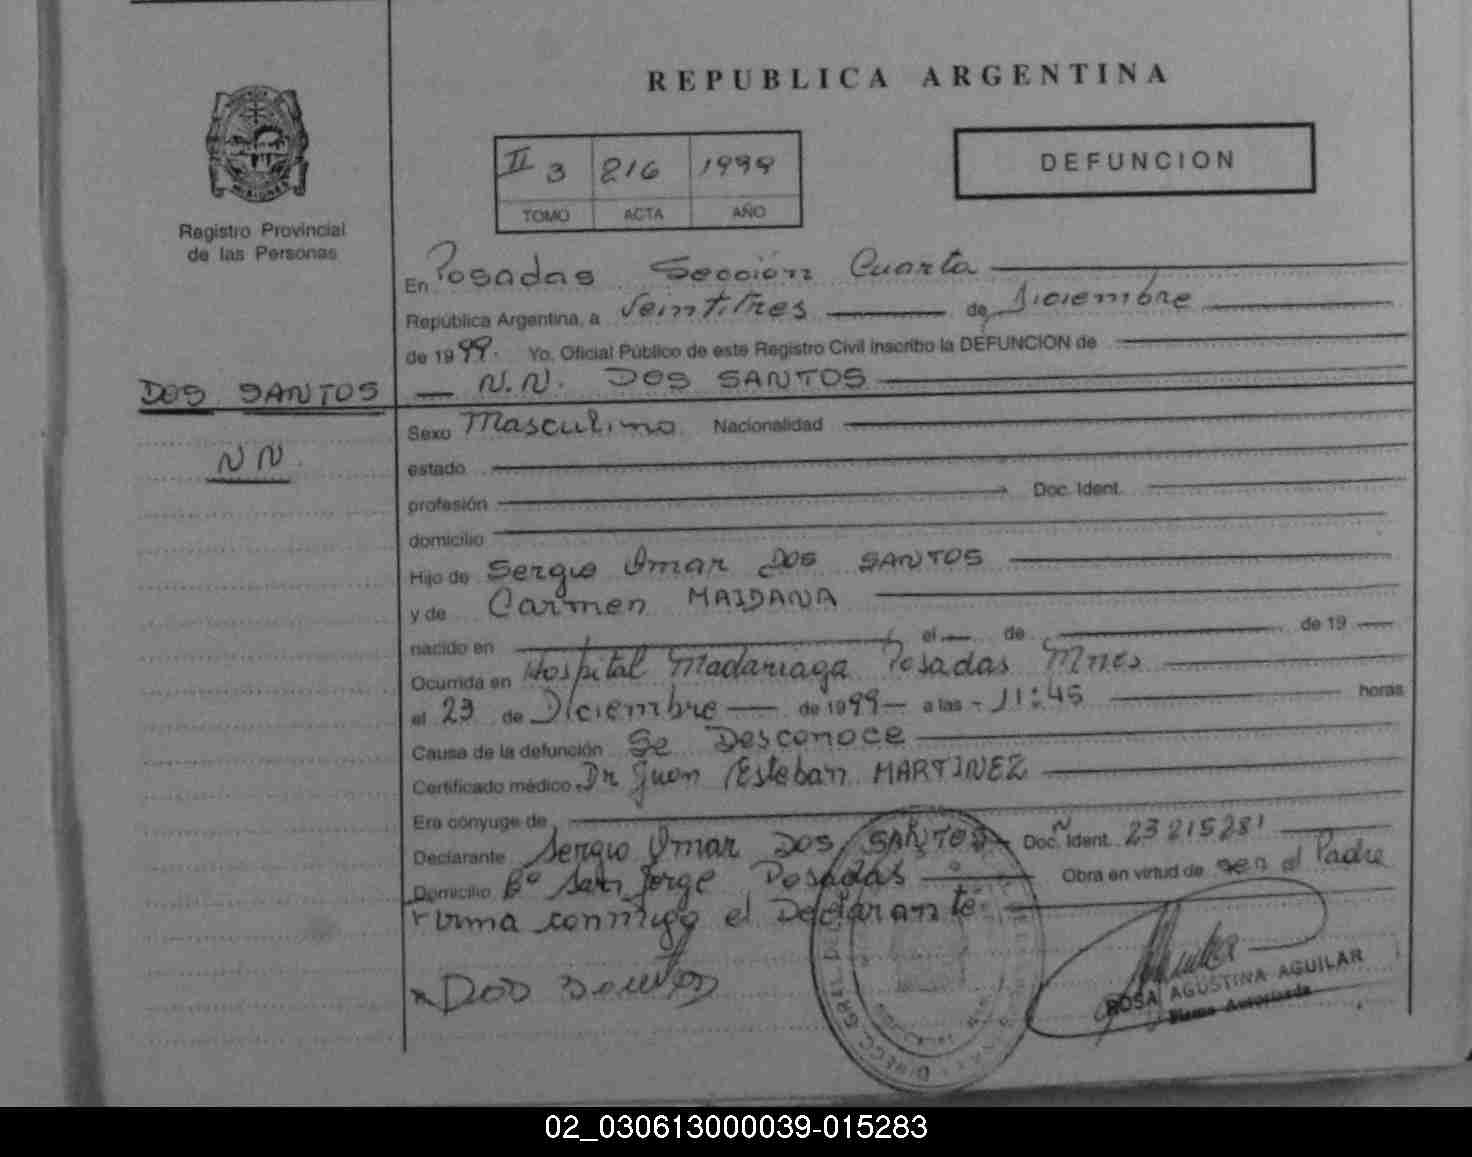 REPUBLICA ARGENTINA
Registro Provincial
de las Personas
II 3 216 1999
TOMO ACTA AÑO
DEFUNCION
En Posadas Sección Cuarta
República Argentina, a Veintitres de Diciembre
de 1999. Yo, Oficial Público de este Registro Civil inscribo la DEFUNCION de
N.N. DOS SANTOS
DOS SANTOS
NN.
Sexo Masculino Nacionalidad
estado
profesión Doc. Ident.
domicilio
Hijo de Sergio Omar DOS SANTOS
y de Carmen MAIDANA
nacido en el de de 19
Ocurrida en Hospital Madariaga Posadas Mnes
el 23 de Diciembre de 1999 a las 11:45 horas
Causa de la defunción Se Desconoce
Certificado médico Dr Juan Esteban MARTINEZ
Era cónyuge de
Declarante Sergio Omar DOS SANTOS Doc. Ident. 23215281
Domicilio Bº San Jorge Posadas Obra en virtud de ser el Padre
Firma conmigo el Declarante
DOS SANTOS
ROSA AGUSTINA AGUILAR
Firma Autorizada
02_030613000039-015283